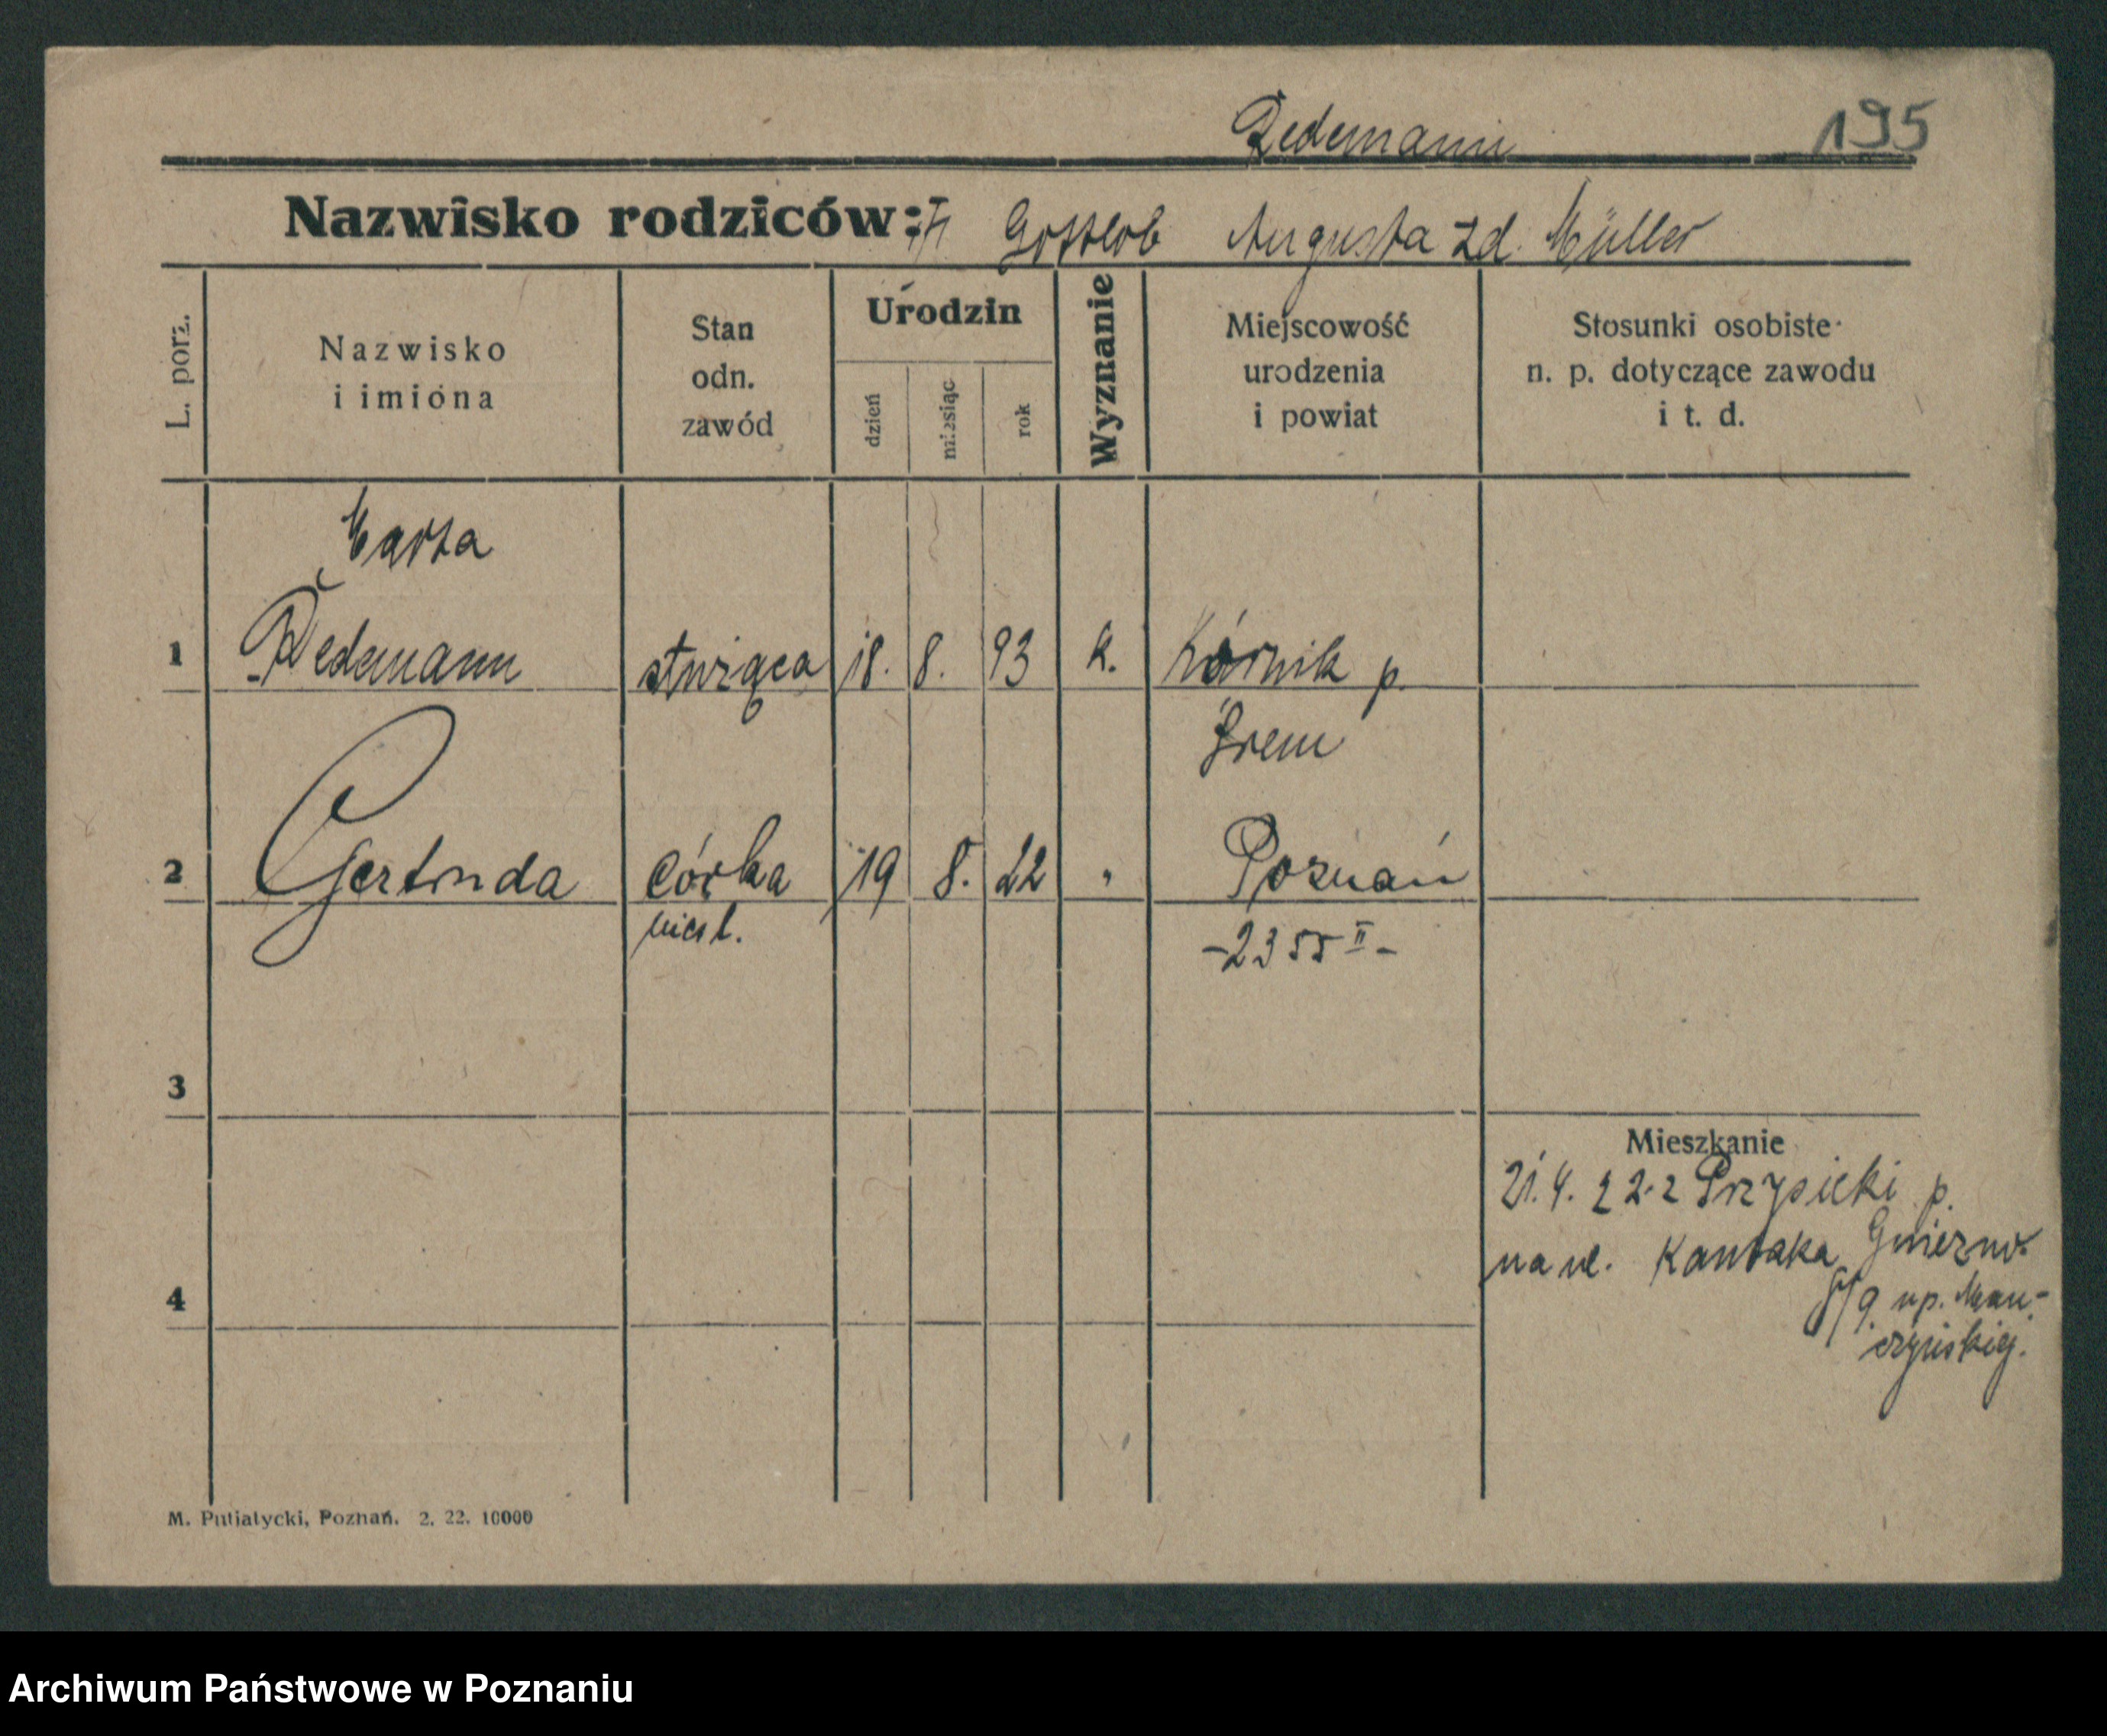 Redemann 195
Nazwisko rodziców: Gottlob Augusta zd. Müller
L. porz.
Nazwisko
i imiona
Stan
odn.
zawód
Urodzin
dzień
miesiąc
rok
Wyznanie
Miejscowość
urodzenia
i powiat
Stosunki osobiste
n. p. dotyczące zawodu
i t. d.
Marta
1 Redemann służąca 18. 8. 93 k. Kórnik p.
Śrem
2 Gertruda córka 19 8. 22 " Poznań
nieśl. -2355 II-
3
Mieszkanie
21.4.22 z Przysieki p.
na ul. Kantaka Gniezno
4 8/9 up. Man-
czyńskiej.
M. Putiatycki, Poznań. 2. 22. 10000
Archiwum Państwowe w Poznaniu